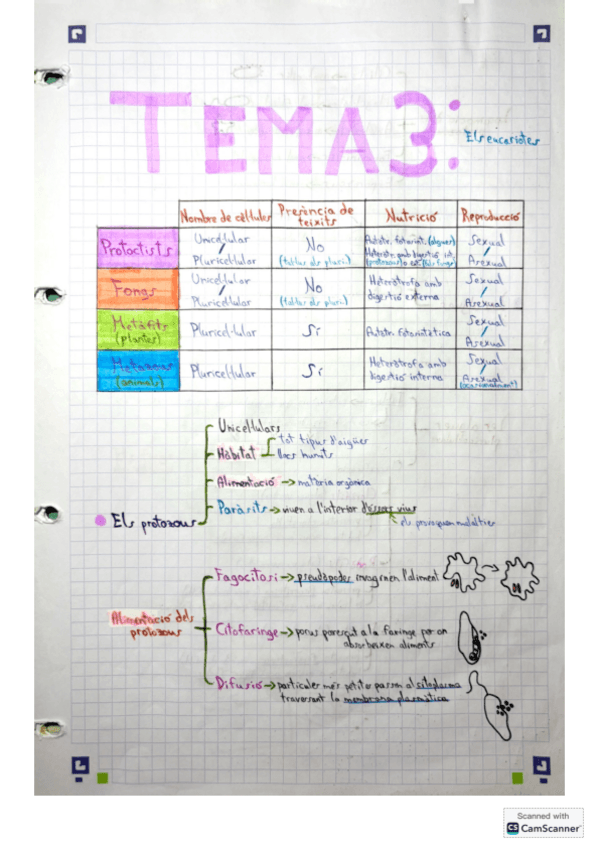 TEMA 3:
Els eucariotes
Nombre de cèl·lules Presència de teixits Nutrició Reproducció
Protoctists Unicel·lular / Pluricel·lular No (tal·lus els pluri.) Autòtr. fotosint. (algues) Heteròtr. amb digestió int. (protozous) o ext. Sexual / Asexual
Fongs Unicel·lular / Pluricel·lular No (tal·lus els pluri.) Heteròtrofa amb digestió externa Sexual / Asexual
Metàfits (plantes) Pluricel·lular Sí Autòtr. fotosintètica Sexual / Asexual
Metazous (animals) Pluricel·lular Sí Heteròtrofa amb digestió interna Sexual / Asexual (ocasionalment)
Els protozous
Unicel·lulars
Hàbitat
tot tipus d'aigües
llocs humits
Alimentació → matèria orgànica
Paràsits → viuen a l'interior d'éssers vius
els provoquen malalties
Alimentació dels protozous
Fagocitosi → pseudòpodes l'aliment
Citofaringe → porus paregut a la faringe por on
absorbeixen aliments
Difusió → partícules més petites passen al citoplasma
travessant la membrana plasmàtica
Scanned with
CS CamScanner